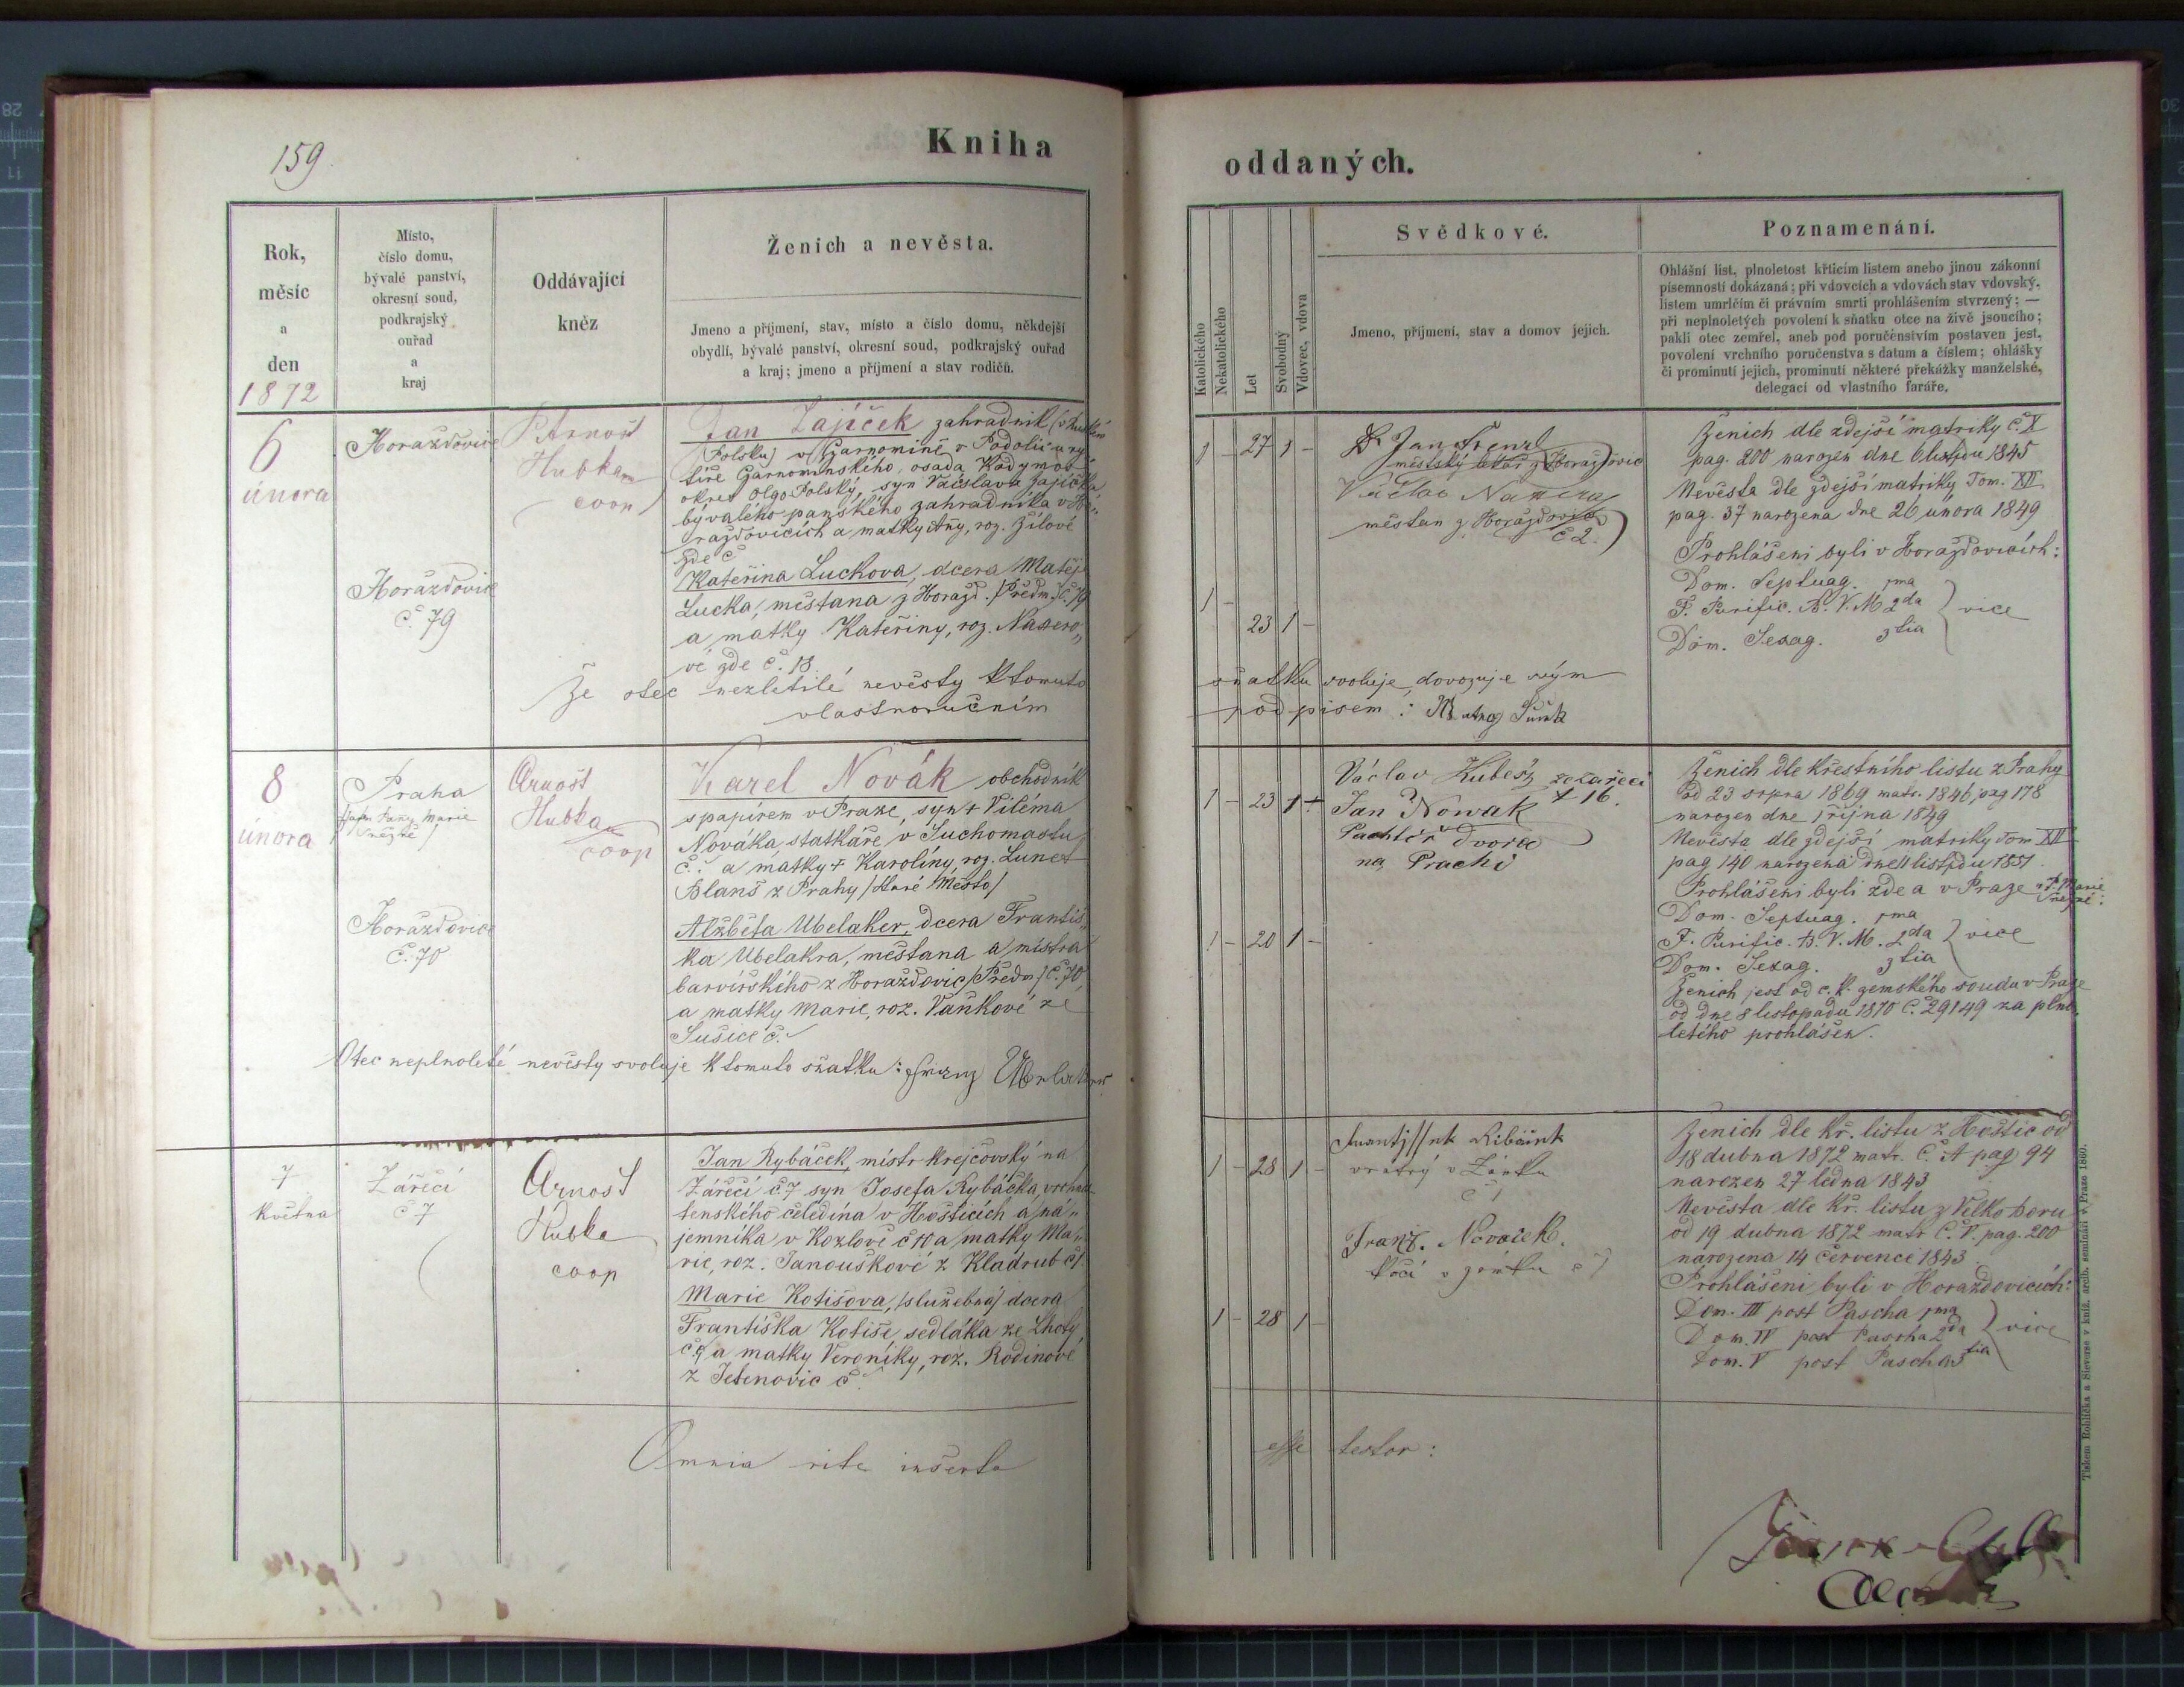 159
Kniha
Rok,
měsíc
a
den
1872
Místo,
číslo domu,
bývalé panství,
okresní soud,
podkrajský
ouřad
a
kraj
Oddávající
kněz
Ženich a nevěsta.
Jmeno a příjmení, stav, místo a číslo domu, někdejší
obydlí, bývalé panství, okresní soud, podkrajský ouřad
a kraj; jmeno a příjmení a stav rodičů.
6
února
Horažďovice
P Arnošt
Hubka
coop
Jan Zajíček zahradník
Polsku) v Czarnomině v Podolí u ry
tíře Czarnominského, osada Kodyma
okres Olgo-Polský, syn Václava Zajíčka
bývalého panského zahradníka v Ho„
ražďovicích a matky Anny, roz. Zílové
zde č
Horažďovice
č. 79
Kateřina Luckova, dcera Matěje
Lucka, měšťana z Horažď. /Předm./ č. 79
a matky Kateřiny, roz. Naxero„
vé zde č. 18.
Že otec nezletilé nevěsty k tomuto
vlastnoručním
8
února
Praha
Panny Marie
Sněžné/
Arnošt
Hubka
coop
Karel Novák obchodník
s papírem v Praze, syn + Viléma
Nováka, statkáře v Suchomastu
č. a matky + Karolíny, roz. Lunet
Blanš z Prahy /Staré Město/
Horažďovice
č. 70
Alžběta Ubelaker, dcera Františ„
ka Ubelakra, měšťana a mistra
barvířského z Horažďovic /Předm/ č. 70
a matky Marie, roz. Vaňkové ze
Sušice č.
Otec neplnoleté nevěsty svoluje k tomuto sňatku: Franz Ubelaker
7
Května
Zářečí
č 7
Arnošt
Hubka
coop
Jan Rybáček, mistr krejčovský na
Zářečí č. 7 syn Josefa Rybáčka, vrchno
tenského čeledína v Hošticích a ná„
jemníka v Kozlově č 10 a matky Ma„
rie, roz. Janouškové z Kladrub č 1.
Marie Kotišova, /služebná/ dcera
Františka Kotiše, sedláka ze Lhoty,
č. 9 a matky Veroniky, roz. Rodinové
z Jetenovic č.
Omnia rite inserta
oddaných.
Katolického
Nekatolického
Let
Svobodný
Vdovec, vdova
Svědkové.
Jmeno, příjmení, stav a domov jejich.
Poznamenání.
Ohlášní list, plnoletost křticím listem anebo jinou zákonní
písemností dokázaná; při vdovcích a vdovách stav vdovský,
listem umrlčím či právním smrti prohlášením stvrzený; —
při neplnoletých povolení k sňatku otce na živě jsoucího;
pakli otec zemřel, aneb pod poručenstvím postaven jest,
povolení vrchního poručenstva s datum a číslem; ohlášky
či prominutí jejich, prominutí některé překážky manželské,
delegací od vlastního faráře.
1 – 27 1 –
Jan Frenzl
městský lékař z Horažďovic
Václav Naxera
měšťan z Horažďovic
č 2.
1 –
23 1 –
Ženich dle zdejší matriky č. X
pag. 200 narozen dne 6 listpdu 1845
Nevěsta dle zdejší matriky Tom. XII
pag. 37 narozena dne 26 února 1849
Prohlášeni byli v Horažďovicích:
Dom. Septuag. 1ma
F. Purific. B. V. M 2da } vice
Dom. Sexag. 3tia
sňatku svoluje, dovozuje svým
podpisem:
1 – 23 1 –
Václav Kubeš, ze zářečí
Jan Nowak č 16.
Pachtěř dvora
na Prachi
1 – 20 1 –
Ženich dle křestního listu z Prahy
od 23 srpna 1869 matr. 1846, pag 178
narozen dne 1 října 1849
Nevěsta dle zdejší matriky Tom XII
pag 140 narozena dne 11 listpdu 1851.
Prohlášeni byli zde a v Praze u P. Marie
Sněžné:
Dom. Septuag. 1ma
F. Purific. B. V. M. 2da } vice
Dom. Sexag. 3tia
Ženich jest od c. k. zemského soudu v Praze
od dne 8 listopadu 1870 č. 29149 za plno„
letého prohlášen.
1 – 28 1 –
vrátný v Zámku
č 1
Franz. Nováček.
kočí v zámku č 1
1 – 28 1 –
Ženich dle kř. listu z Hoštic od
18 dubna 1872 matr. č. A pag 94
narozen 27 ledna 1843
Nevěsta dle kř. listu z Velkoboru
od 19 dubna 1872 matr č. V. pag. 200
narozena 14 července 1843
Prohlášeni byli v Horažďovicích:
Dom. III post Pascha 1ma
Dom. IV post Pascha 2da } vice
Dom. V post Pascha 3tia
esse testor:
Tiskem Rohlíčka a Sieverse v kníž. arcib. semináři v Praze 1860.